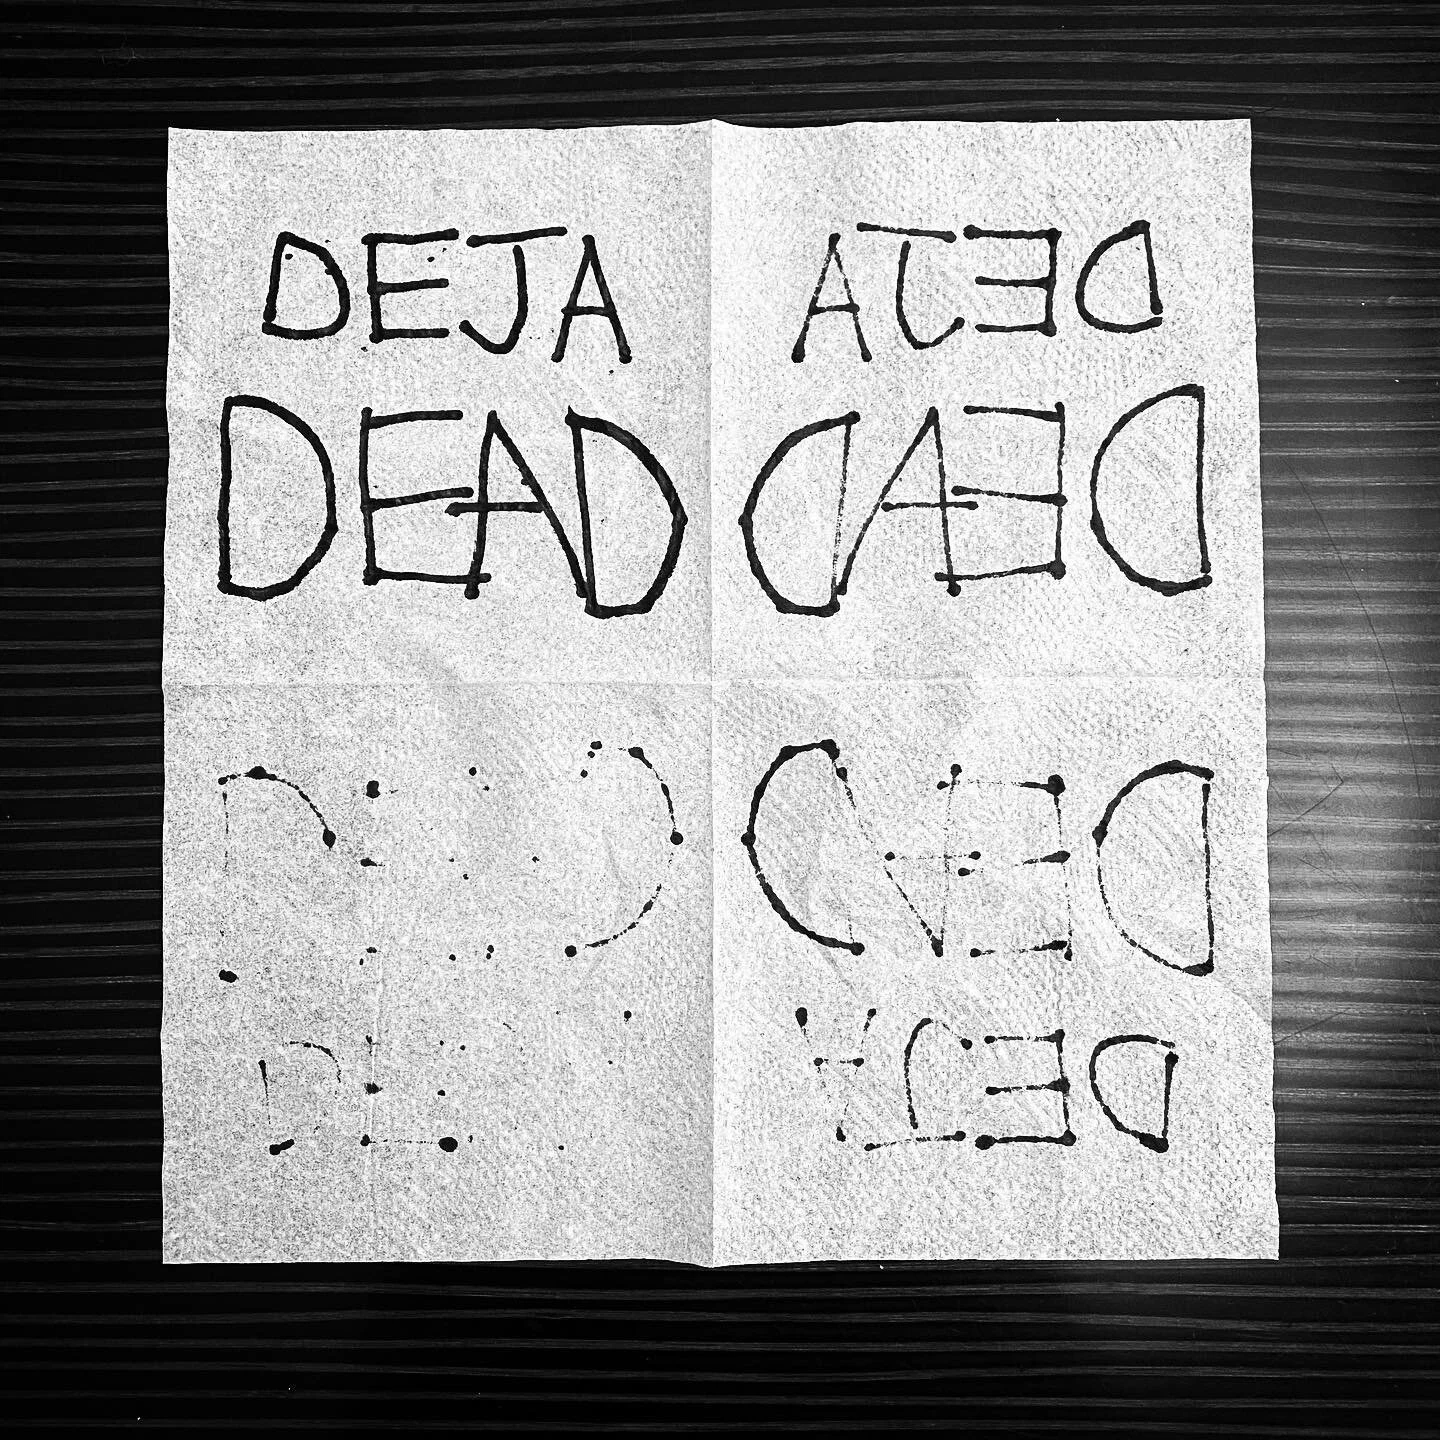 DEJA
DEAD